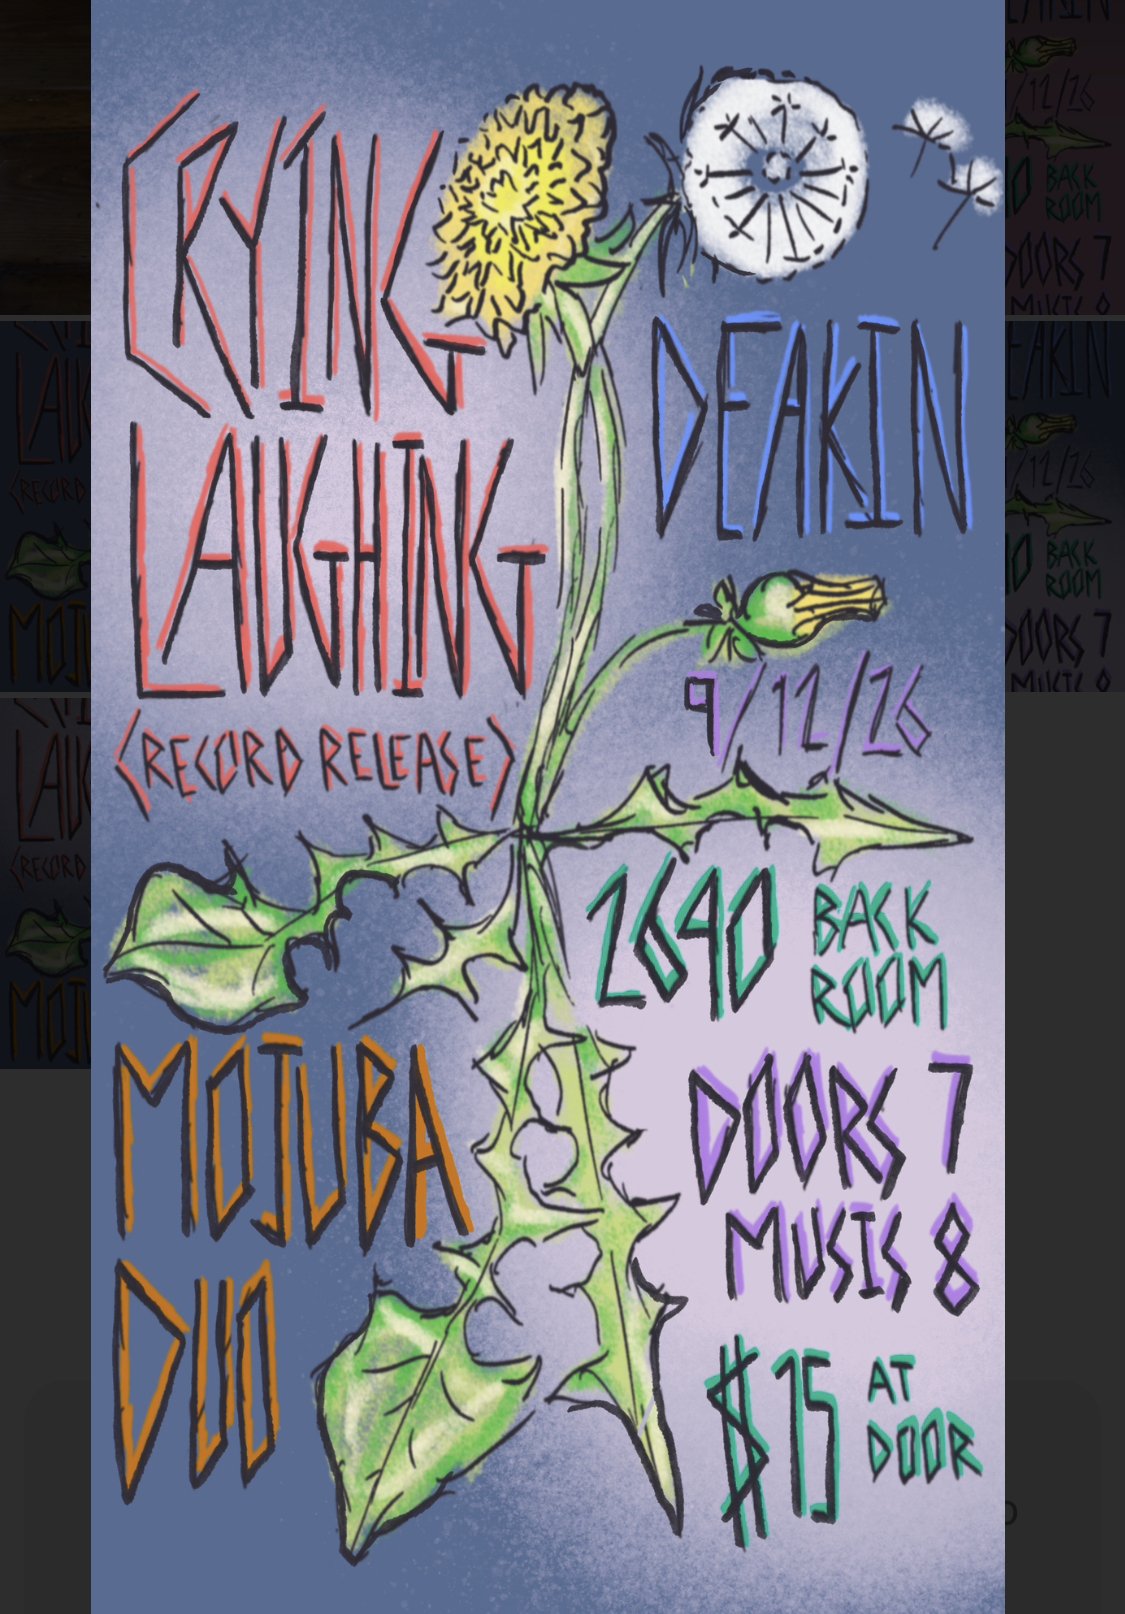 CRYING
LAUGHING
(RECORD RELEASE)
DEAKIN
9/12/26
2640 BACK
ROOM
MOJUBA
DUO
DOORS 7
MUSIC 8
$15 AT
DOOR